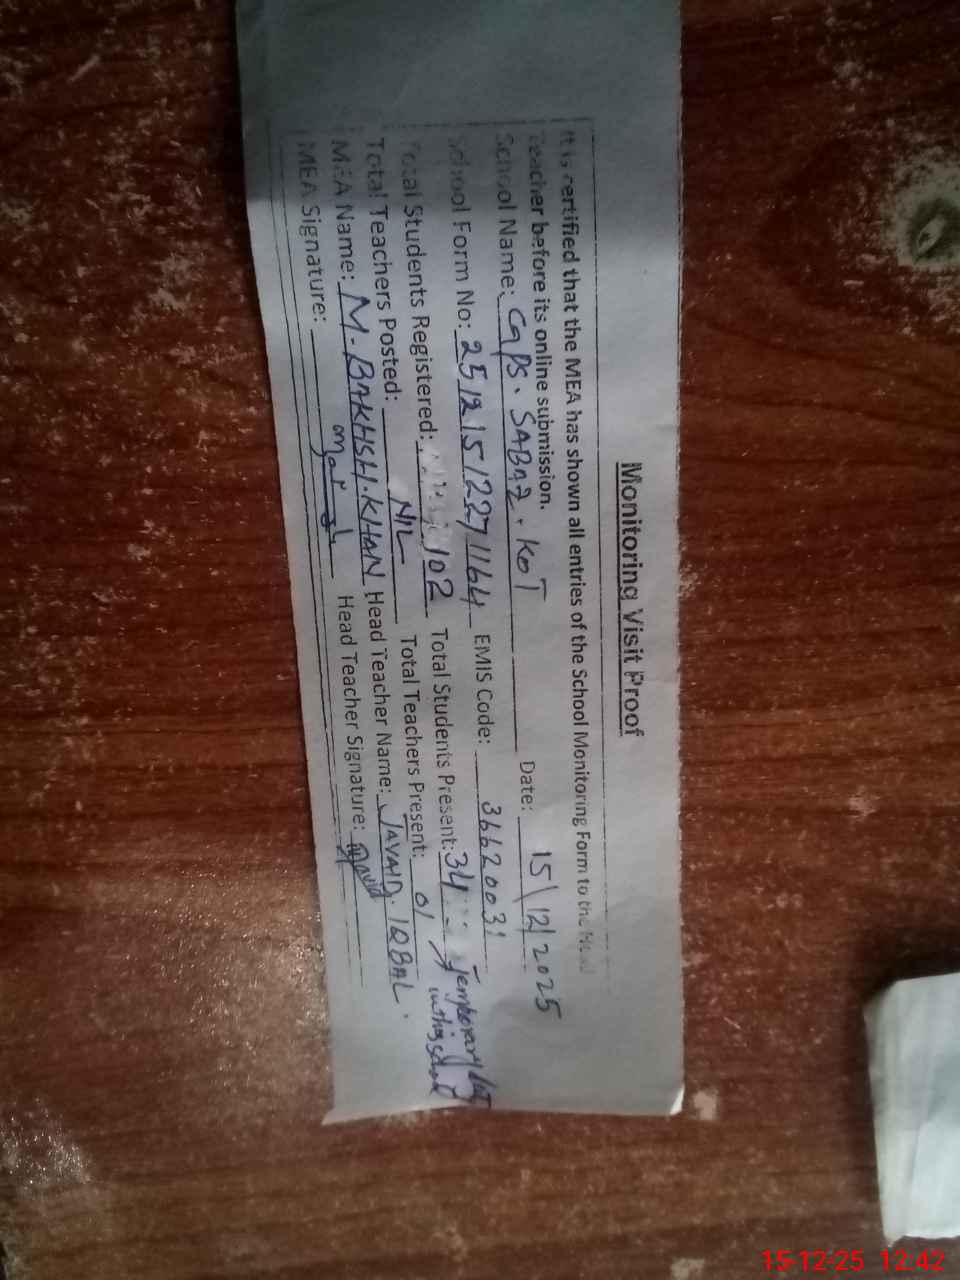 Monitoring Visit Proof
It is certified that the MEA has shown all entries of the School Monitoring Form to the Head
Teacher before its online submission.
School Name: GPS. SABAZ. KOT Date: 15/12/2025
School Form No: 25121512271164 EMIS Code: 36620031
Total Students Registered: 102 Total Students Present: 34 Temporary duty
in this school
Total Teachers Posted: NIL Total Teachers Present: 01
MEA Name: M-BAKHSH.KHAN Head Teacher Name: JAVAID.IQBAL.
MEA Signature: Head Teacher Signature: Javid
15-12-25 12:42